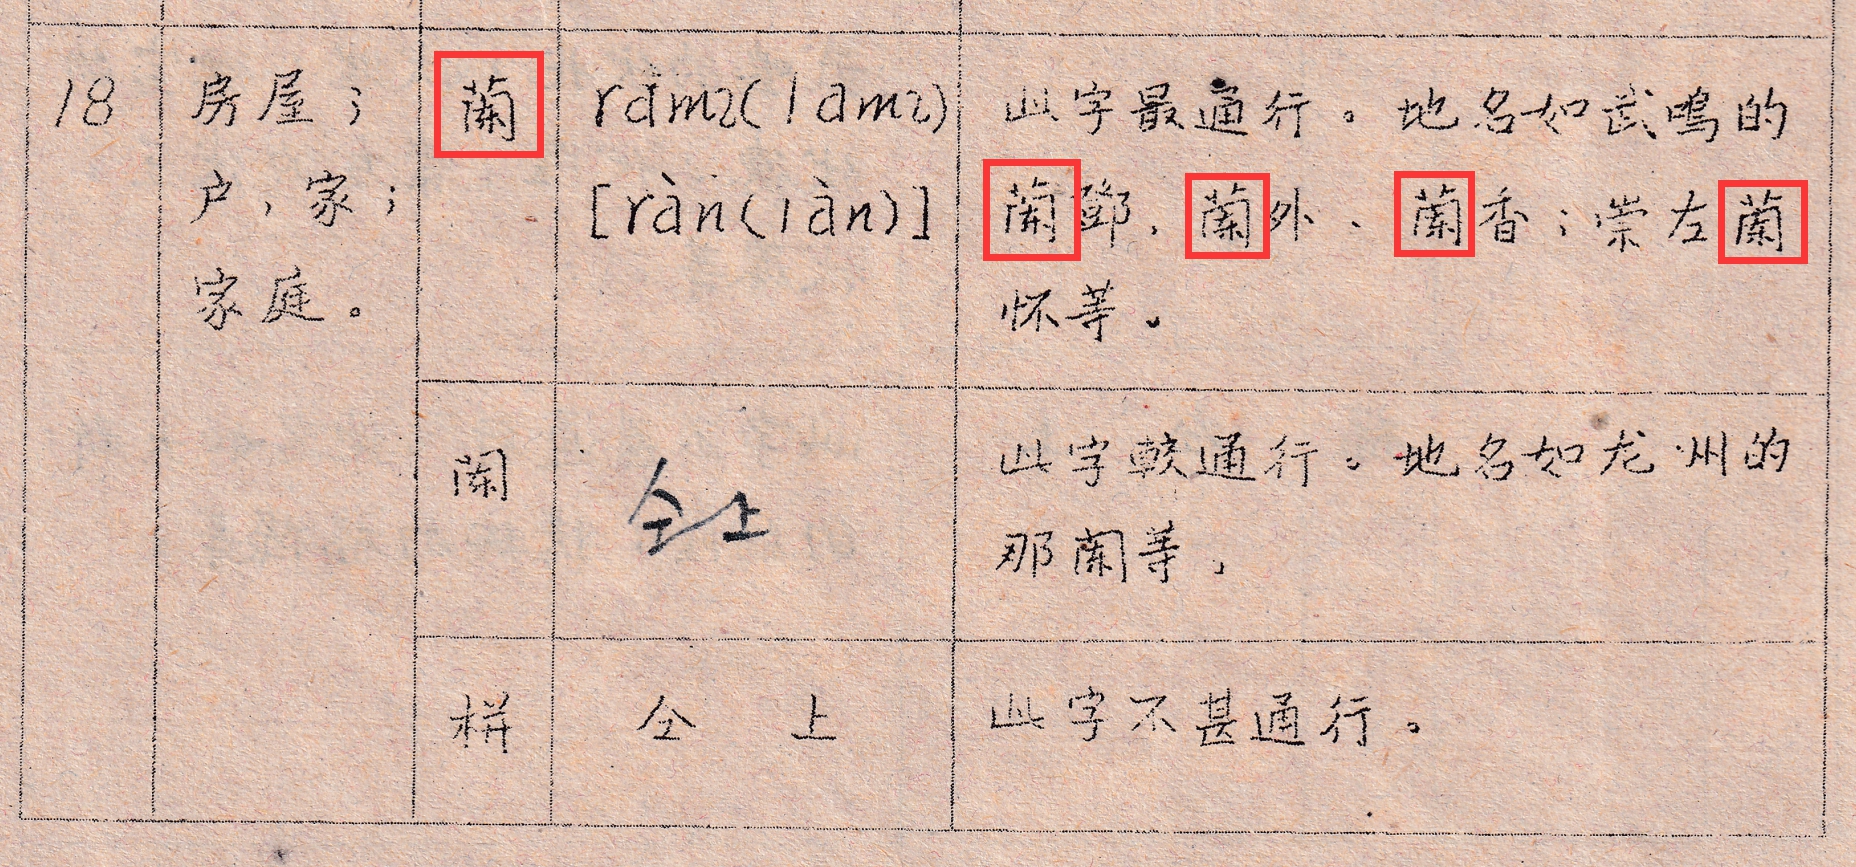 18 房屋； 蘭 ramz(lamz) 此字最通行。地名如武鸣的
户，家； [ràn(làn)] 蘭鄧、蘭外、蘭香；崇左蘭
家庭。 怀等。
阑 仝上 此字較通行。地名如龙州的
那阑等，
栟 仝上 此字不甚通行。